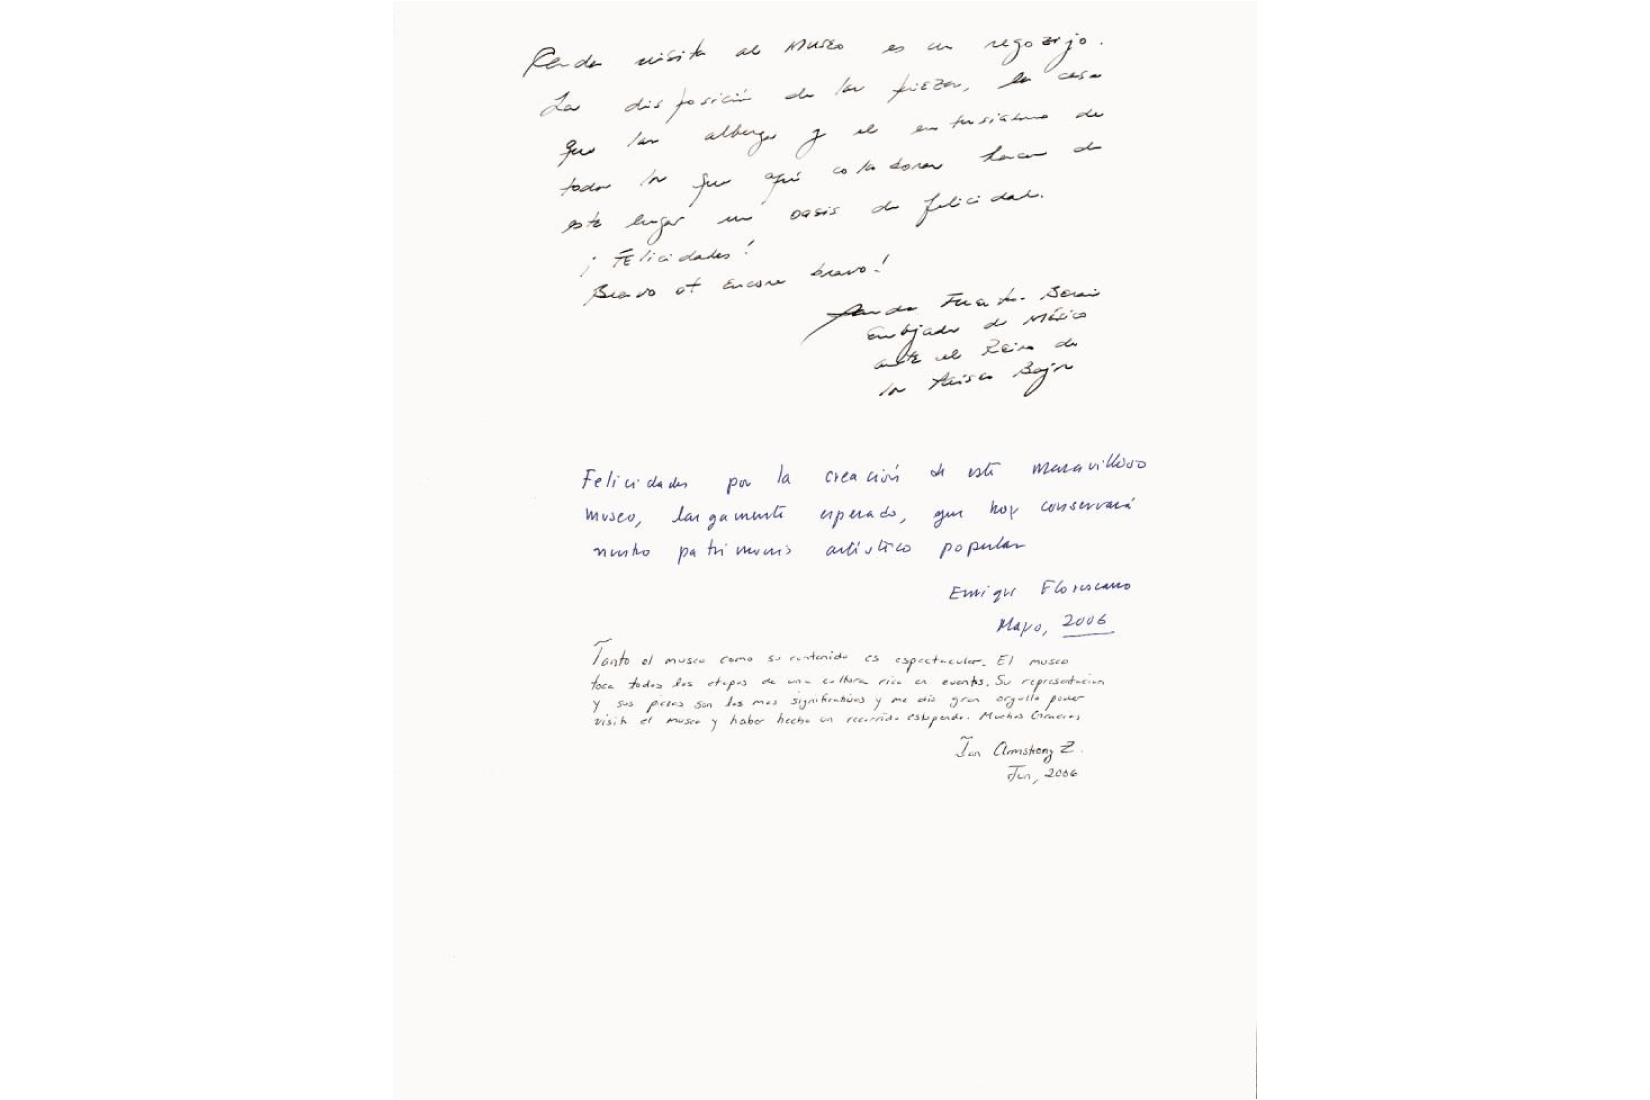 visita al Museo es un regozijo.
La disposición de las piezas, la casa
que las alberga y el entusiasmo de
todos los que aquí colaboran hacen de
este lugar un oasis de felicidad.
¡Felicidades!
Bravo et encore bravo!
Sandra Fuentes-Berain
Embajada de México
ante el Reino de
los Países Bajos
Felicidades por la creación de este maravilloso
museo, largamente esperado, que hoy conservará
nuestro patrimonio artístico popular
Enrique Florescano
Mayo, 2006
Tanto el museo como su contenido es espectacular. El museo
toca todas las etapas de una cultura rica en eventos. Su representacion
y sus piezas son las mas significativas y me dio gran orgullo poder
visitar el museo y haber hecho un recorrido estupendo. Muchas Gracias
Ian Armstrong Z.
Jun, 2006